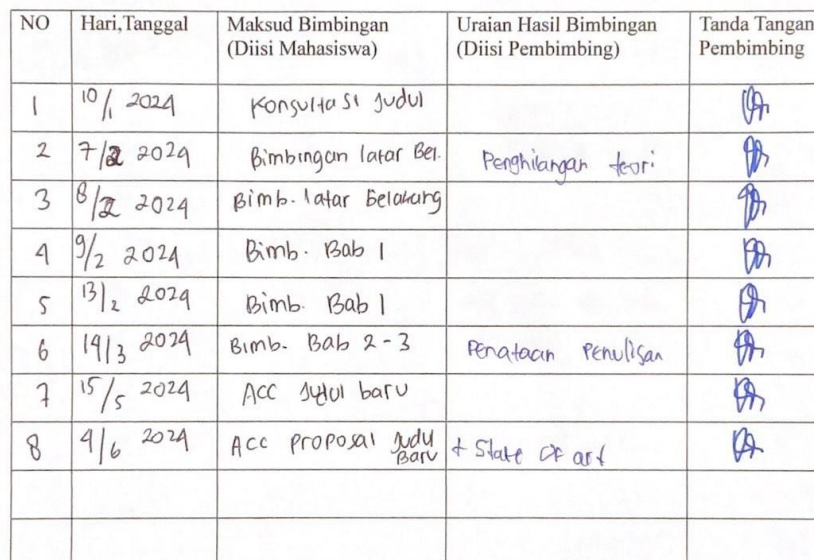 NO Hari,Tanggal Maksud Bimbingan Uraian Hasil Bimbingan Tanda Tangan
(Diisi Mahasiswa) (Diisi Pembimbing) Pembimbing
1 10/1 2024 Konsultasi Judul
2 7/2 2024 Bimbingan latar Bel. Penghilangan teori
3 8/2 2024 Bimb. latar Belakang
4 9/2 2024 Bimb. Bab 1
5 13/2 2024 Bimb. Bab 1
6 14/3 2024 Bimb. Bab 2-3 Penataan Penulisan
7 15/5 2024 ACC Judul baru
8 4/6 2024 ACC proposal Judul + State of art
Baru